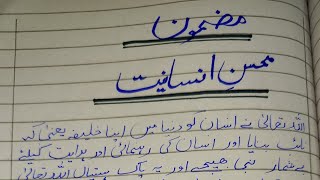 مضمون
محسنِ انسانیت
اللہ تعالیٰ نے انسان کو دنیا میں اپنا خلیفہ یعنی کہ
نائب بنایا اور انسان کی رہنمائی اور ہدایت کیلئے
بےشمار نبی بھیجے اور یہ اللہ تعالیٰ